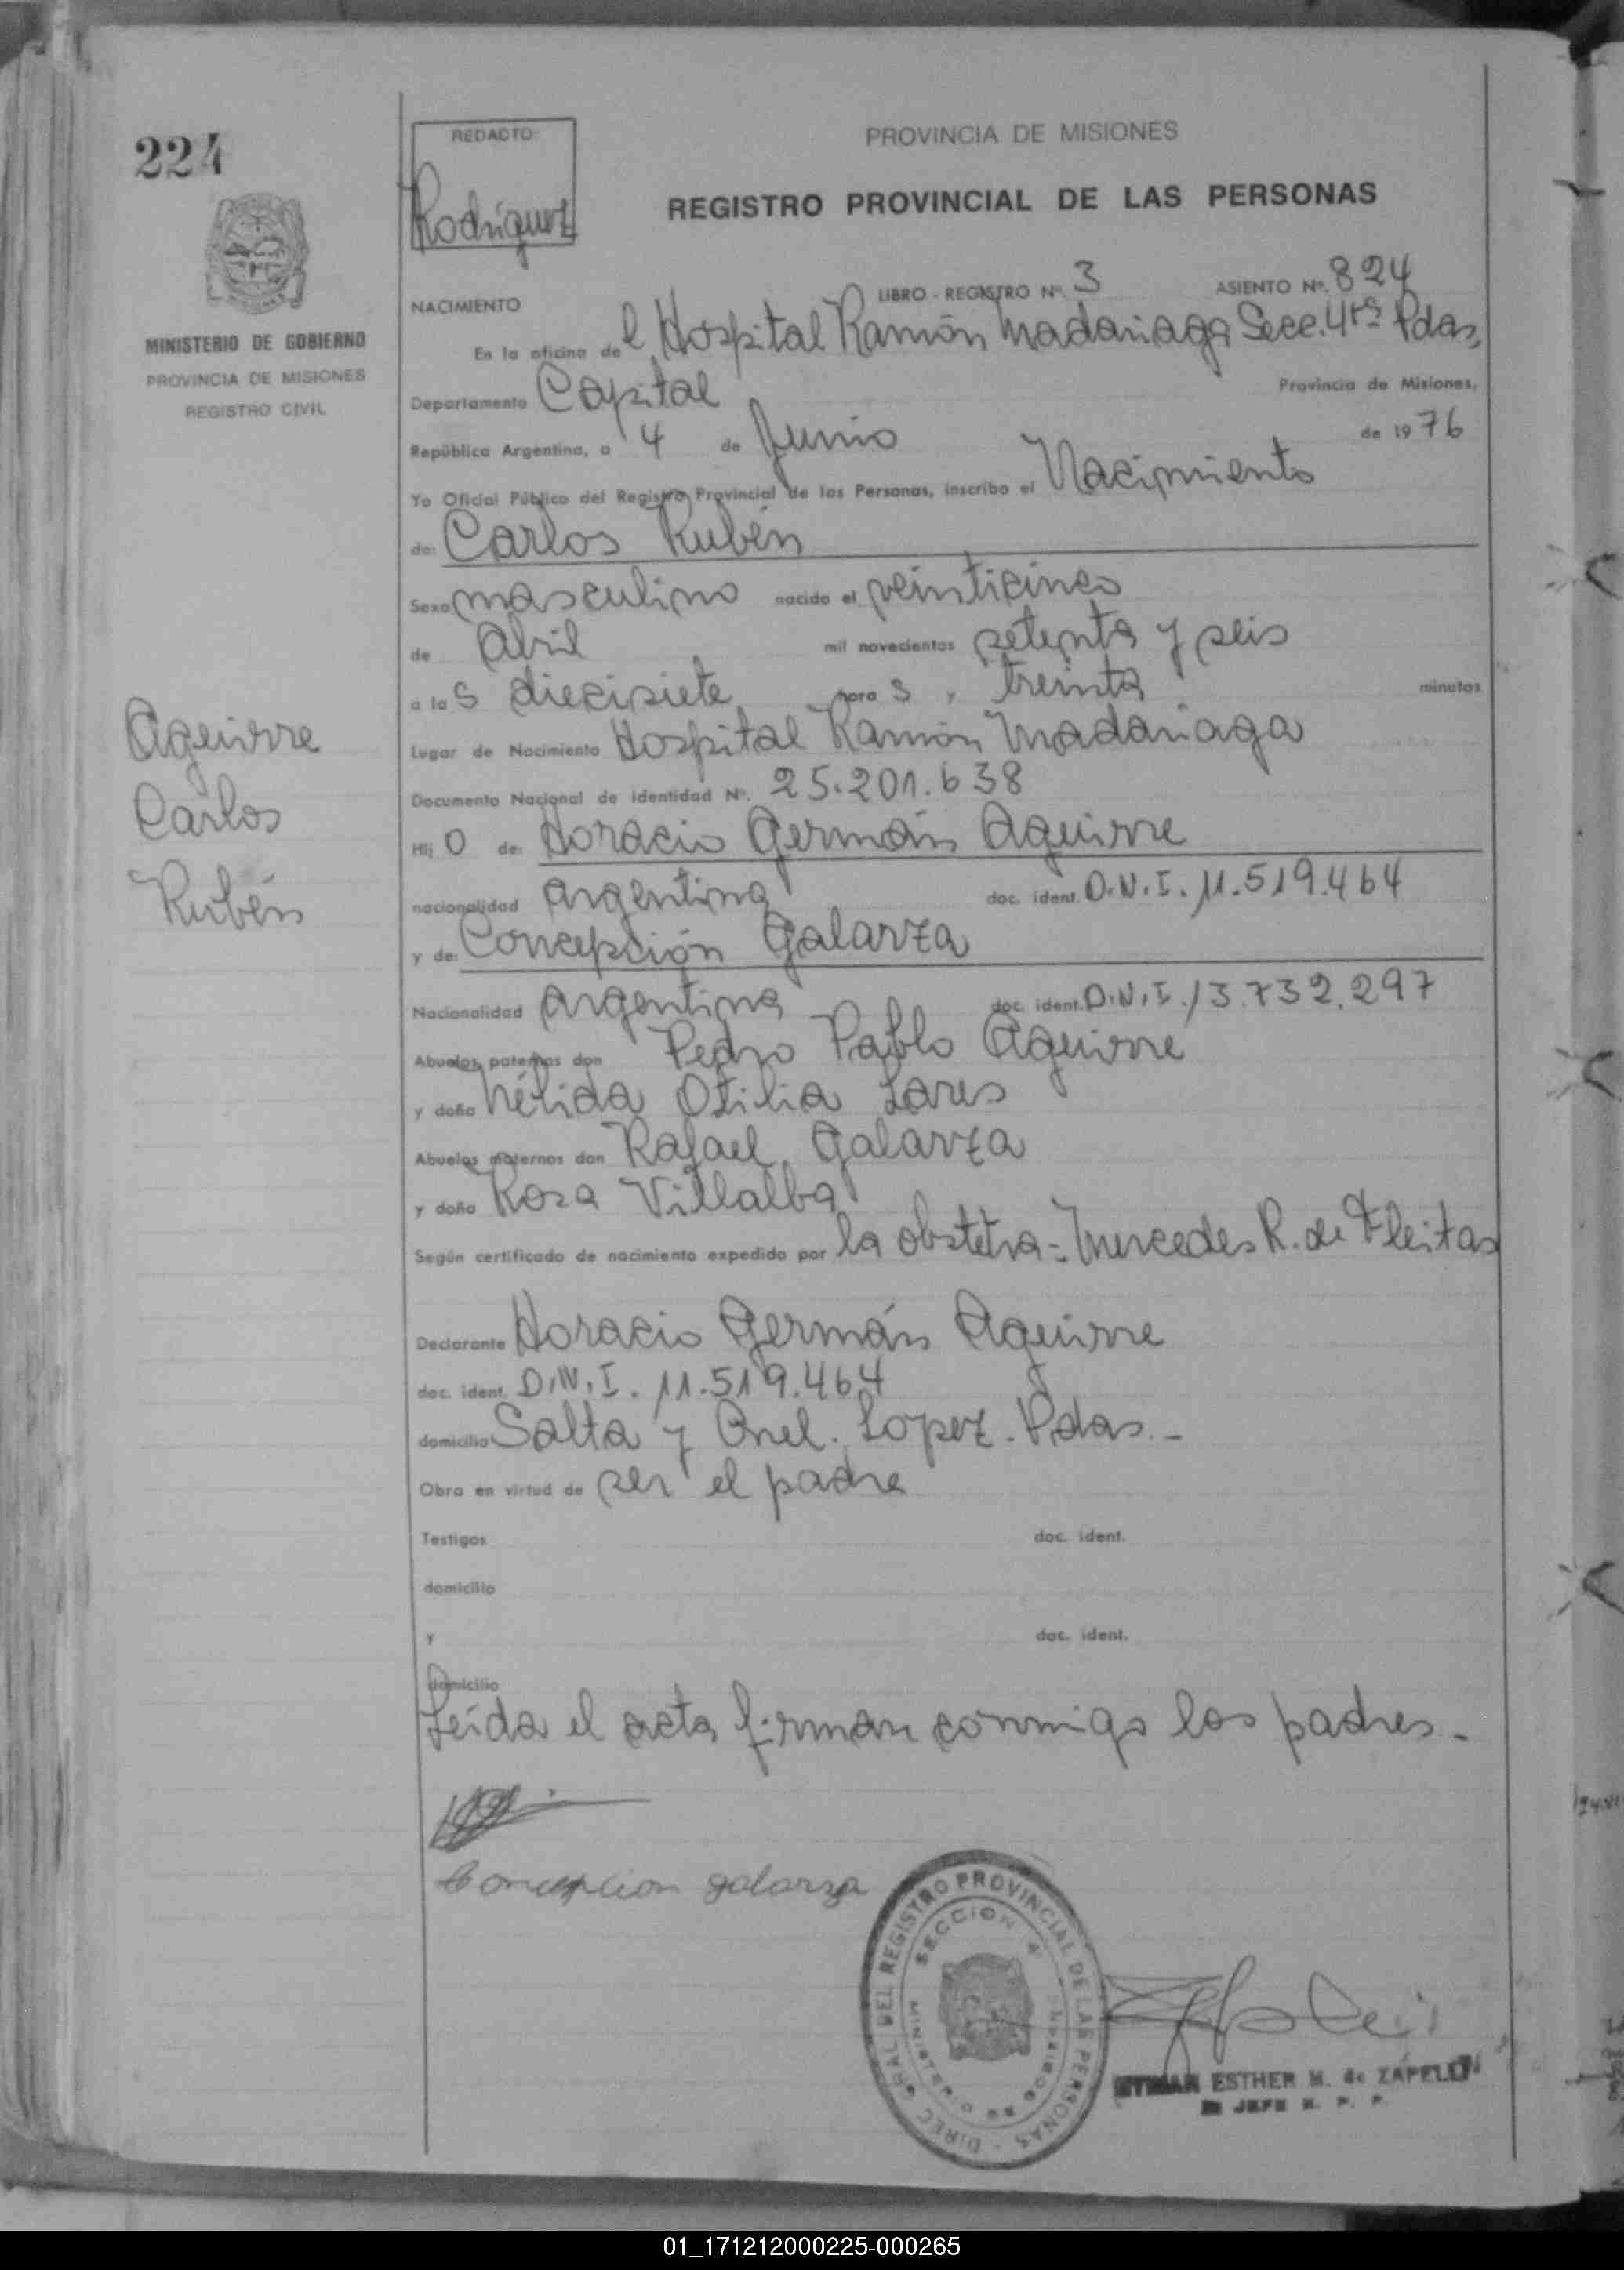 224
REDACTO:
Rodríguez
PROVINCIA DE MISIONES
REGISTRO PROVINCIAL DE LAS PERSONAS
MINISTERIO DE GOBIERNO
PROVINCIA DE MISIONES
REGISTRO CIVIL
LIBRO - REGISTRO Nº. 3 ASIENTO Nº. 824
NACIMIENTO
En la oficina de l Hospital Ramón Madariaga Secc. 4ta Pdas,
Departamento Capital Provincia de Misiones,
República Argentina, a 4 de Junio de 1976
Yo Oficial Público del Registro Provincial de las Personas, inscribo el Nacimiento
de: Carlos Rubén
Sexo masculino nacido el veinticinco
de Abril mil novecientos setenta y seis
a las diecisiete horas y treinta minutos
Lugar de Nacimiento Hospital Ramón Madariaga
Documento Nacional de Identidad Nº. 25.201.638
Hijo de: Horacio Germán Aguirre
nacionalidad argentina doc. ident. D.N.I. 11.519.464
y de: Concepción Galarza
Nacionalidad argentina doc. ident. D.N.I. 13.732.297
Abuelos paternos don Pedro Pablo Aguirre
y doña Nélida Otilia Lares
Abuelos maternos don Rafael Galarza
y doña Rosa Villalba
Según certificado de nacimiento expedido por la obstetra - Mercedes R. de Fleitas
Declarante Horacio Germán Aguirre
doc. ident. D.N.I. 11.519.464
domicilio Salta y Cnel. Lopez. Pdas. -
Obra en virtud de ser el padre
Testigos doc. ident.
domicilio
y doc. ident.
domicilio
Leída el acta firman conmigo los padres. -
Aguirre
Carlos
Rubén
Concepcion galarza
DIREC. GRAL. DEL REGISTRO PROVINCIAL DE LAS PERSONAS
SECCION 4
MINISTERIO DE GOBIERNO
ESTHER M. de ZAPELLI
JEFE R. P. P.
01_171212000225-000265